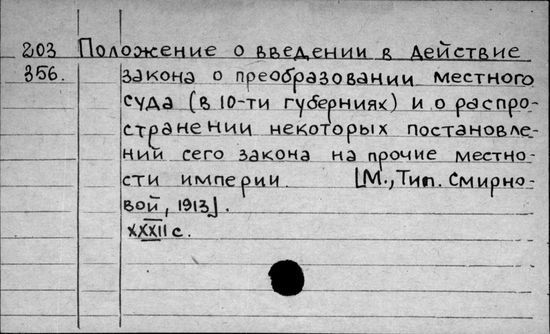 203 Положение о введении в действие
356. закона о преобразовании местного
суда (в 10-ти губерниях) и о распро-
странении некоторых постановле-
ний сего закона на прочие местно-
сти империи. [М., Тип. Смирно-
вой, 1913].
XXXII с.